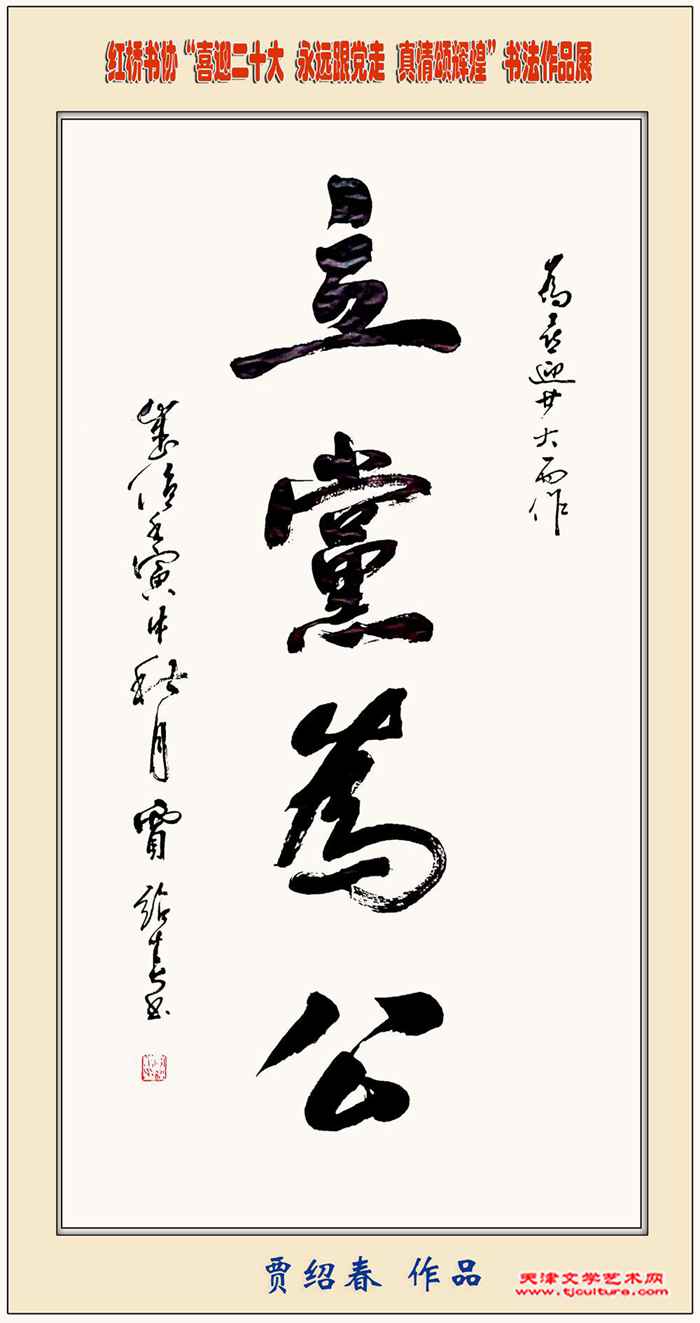 红桥书协“喜迎二十大 永远跟党走 真情颂辉煌”书法作品展
为喜迎廿大而作
立黨為公
歲值壬寅中秋月賈紹春书
贾绍春 作品
天津文学艺术网
www.tjculture.com